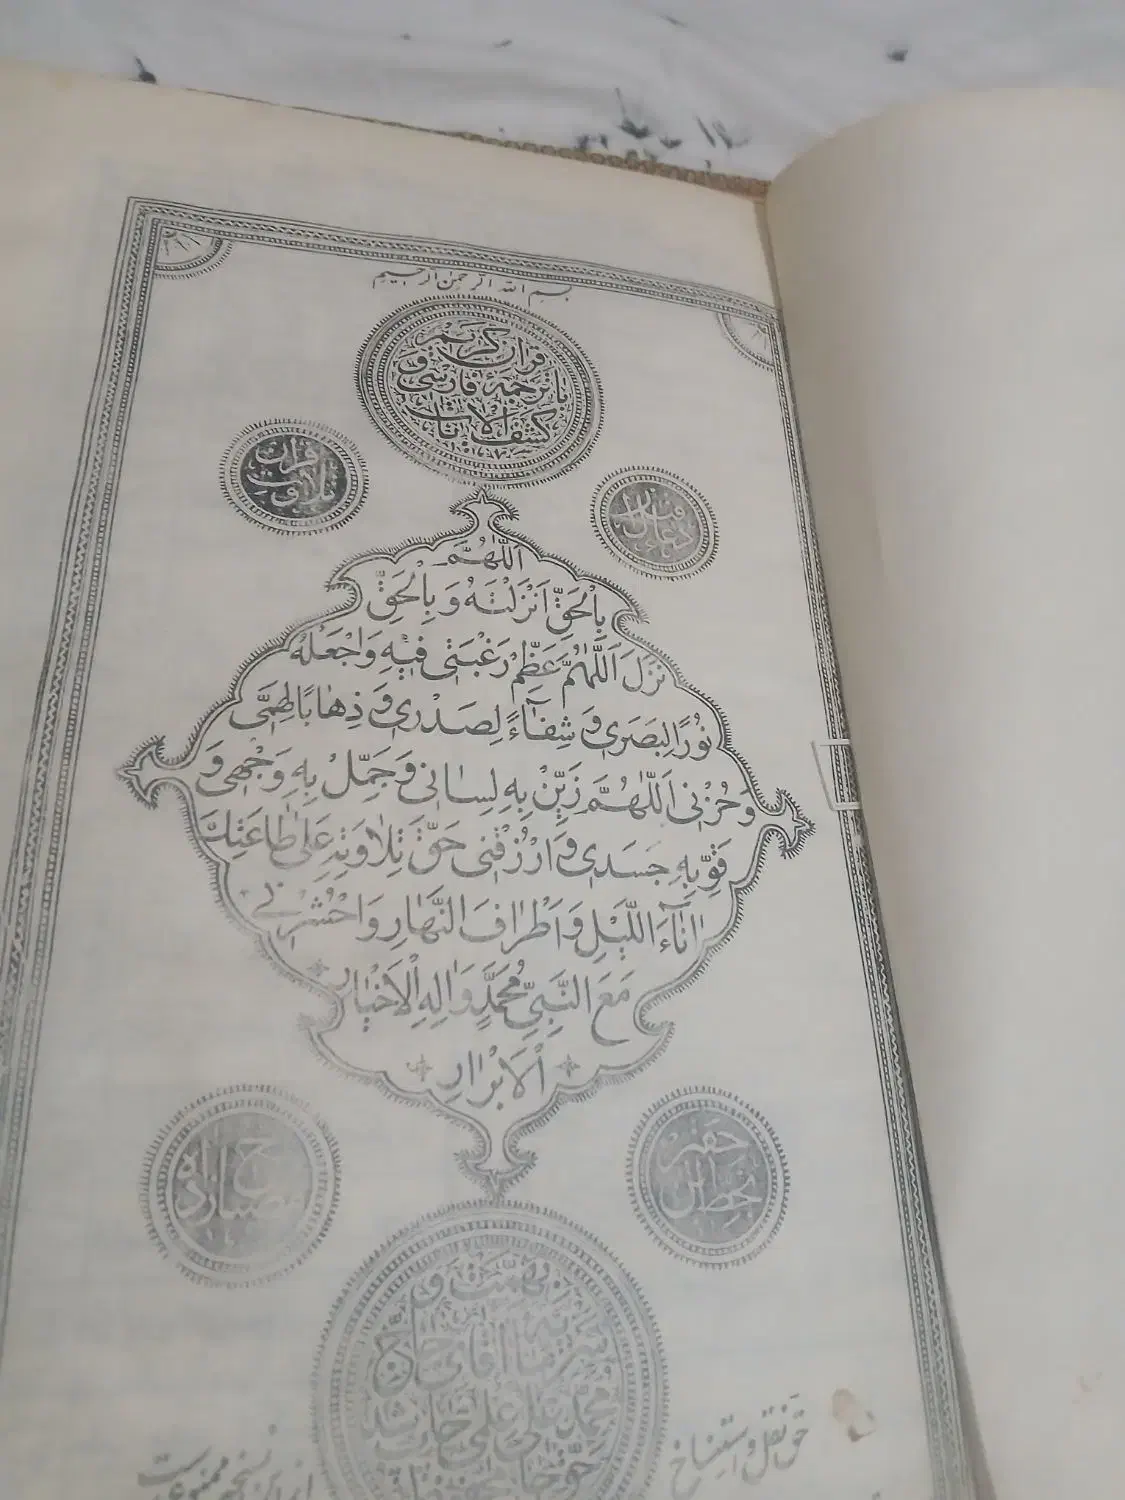 بسم الله الرحمن الرحیم
قرآن کریم
با ترجمهٔ فارسی و
کشف الآیات
دعای قبل از
تلاوت قرآن
اَللّٰهُمَّ
بِالْحَقِّ اَنْزَلْتَهُ وَ بِالْحَقِّ
نَزَلَ اَللّٰهُمَّ عَظِّمْ رَغْبَتی فیهِ وَاجْعَلْهُ
نُورًا لِبَصَری وَ شِفٰآءً لِصَدْری وَ ذِهٰابًا لِهَمّی
وَ حُزْنی اَللّٰهُمَّ زَیِّنْ بِهِ لِسٰانی وَ جَمِّلْ بِهِ وَجْهی وَ
قَوِّ بِهِ جَسَدی وَ ارْزُقْنی حَقَّ تِلٰاوَتِهِ عَلیٰ طٰاعَتِكَ
اٰنٰآءَ اللَّیْلِ وَ اَطْرٰافَ النَّهٰارِ وَ احْشُرْنی
مَعَ النَّبِیِّ مُحَمَّدٍ وَ اٰلِهِ الْاَخْیٰارِ
الْاَبْرٰارِ
بخط
بهمت و
سرمایه
آقای حاج
محمد علی علمی چاپ شد
حق نقل و استنساخ
از این نسخه ممنوعست